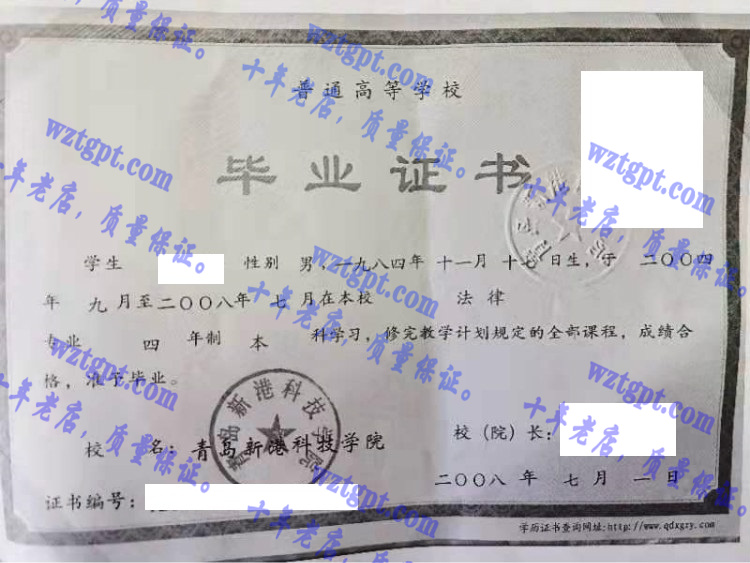 普通高等学校
毕业证书
学生 性别 男，一九八四年 十一月 十七日生，于 二〇〇四
年 九 月至二〇〇八年 七 月在本校 法律
专业 四 年制 本 科学习，修完教学计划规定的全部课程，成绩合
格，准予毕业。
青岛新港科技学院
校 名：青岛新港科技学院
校（院）长：
二〇〇八 年 七 月 一 日
证书编号：
学历证书查询网址:http://www.qdxgzy.com
wztgpt.com
十年老店，质量保证。